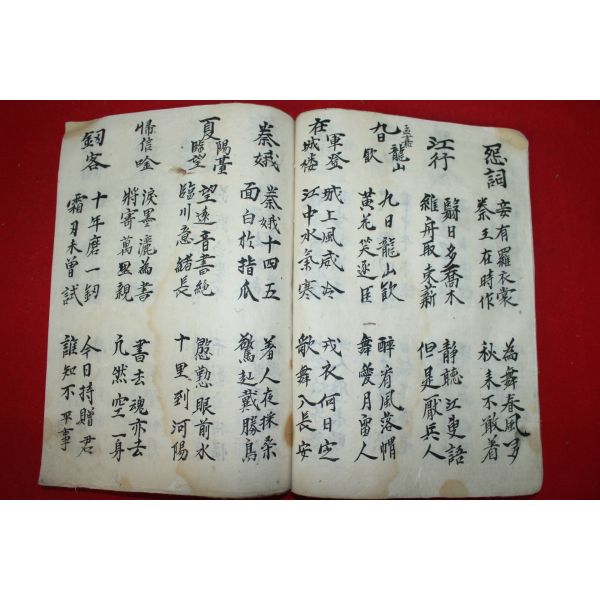 怨詞
妾有羅衣裳
秦王在時作
為舞春風多
秋来不敢着
江行
翳日多喬木
維舟取束薪
靜聽江叟語
但是厭兵人
龍山
九日飲
九日龍山飲
黃花笑逐臣
醉看風落帽
舞愛月留人
在軍登
城楼
城上風威冷
江中水氣寒
戎衣何日定
歌舞入長安
秦娥
秦娥十四五
面白於指爪
羞人夜採桑
驚起戴勝鳥
夏陽臺
臨望
望遠音書絕
臨川意緒長
慇懃眼前水
十里到河陽
歸信唫
淚墨灑為書
將寄萬里親
書去魂亦去
兀然空一身
釖客
十年磨一釖
霜刃未曾試
今日持贈君
誰知不平事